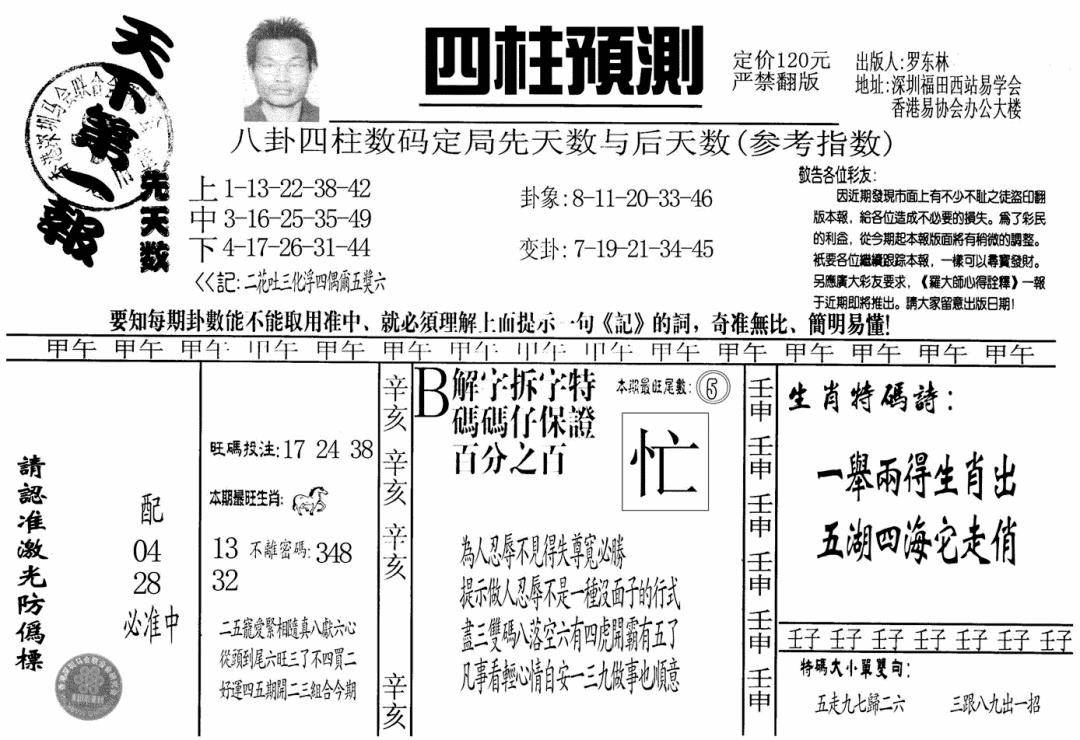 天下第一報
四柱預測
定价120元
严禁翻版
出版人:罗东林
地址:深圳福田西站易学会
香港易协会办公大楼
八卦四柱数码定局先天数与后天数(参考指数)
先天数
上 1-13-22-38-42
中 3-16-25-35-49
下 4-17-26-31-44
<<記:二花吐三化浮四偶爾五獎六
卦象:8-11-20-33-46
变卦:7-19-21-34-45
敬告各位彩友:
因近期發現市面上有不少不耻之徒盜印翻
版本報,給各位造成不必要的損失。爲了彩民
的利益,從今期起本報版面將有稍微的調整。
衹要各位繼續跟踪本報,一樣可以尋寶發財。
另應廣大彩友要求,《羅大師心得詮釋》一報
于近期即將推出。請大家留意出版日期!
要知每期卦數能不能取用准中、就必須理解上面提示一句《記》的詞,奇准無比、簡明易懂!
甲午 甲午 甲午 甲午 甲午 甲午 甲午 甲午 甲午 甲午 甲午 甲午 甲午 甲午 甲午
請認准激光防僞標
配
04
28
必准中
旺碼投注:17 24 38
本期最旺生肖:
13 不離密碼:348
32
二五寵愛緊相隨真八獻六心
從頭到尾六旺三了不四買二
好運四五期開二三組合今期
辛亥
辛亥
辛亥
辛亥
B 解字拆字特
碼碼仔保證
百分之百
本期最旺尾數:5
忙
為人忍辱不見得失尊寬必勝
提示做人忍辱不是一種沒面子的行式
盡三雙碼八落空六有四虎開霸有五了
凡事看輕心情自安一三九做事也順意
壬申
壬申
壬申
壬申
壬申
壬申
生肖特碼詩:
一舉兩得生肖出
五湖四海它走俏
壬子 壬子 壬子 壬子 壬子 壬子 壬子
特碼大小單雙句:
五走九七歸二六
三跟八九出一招